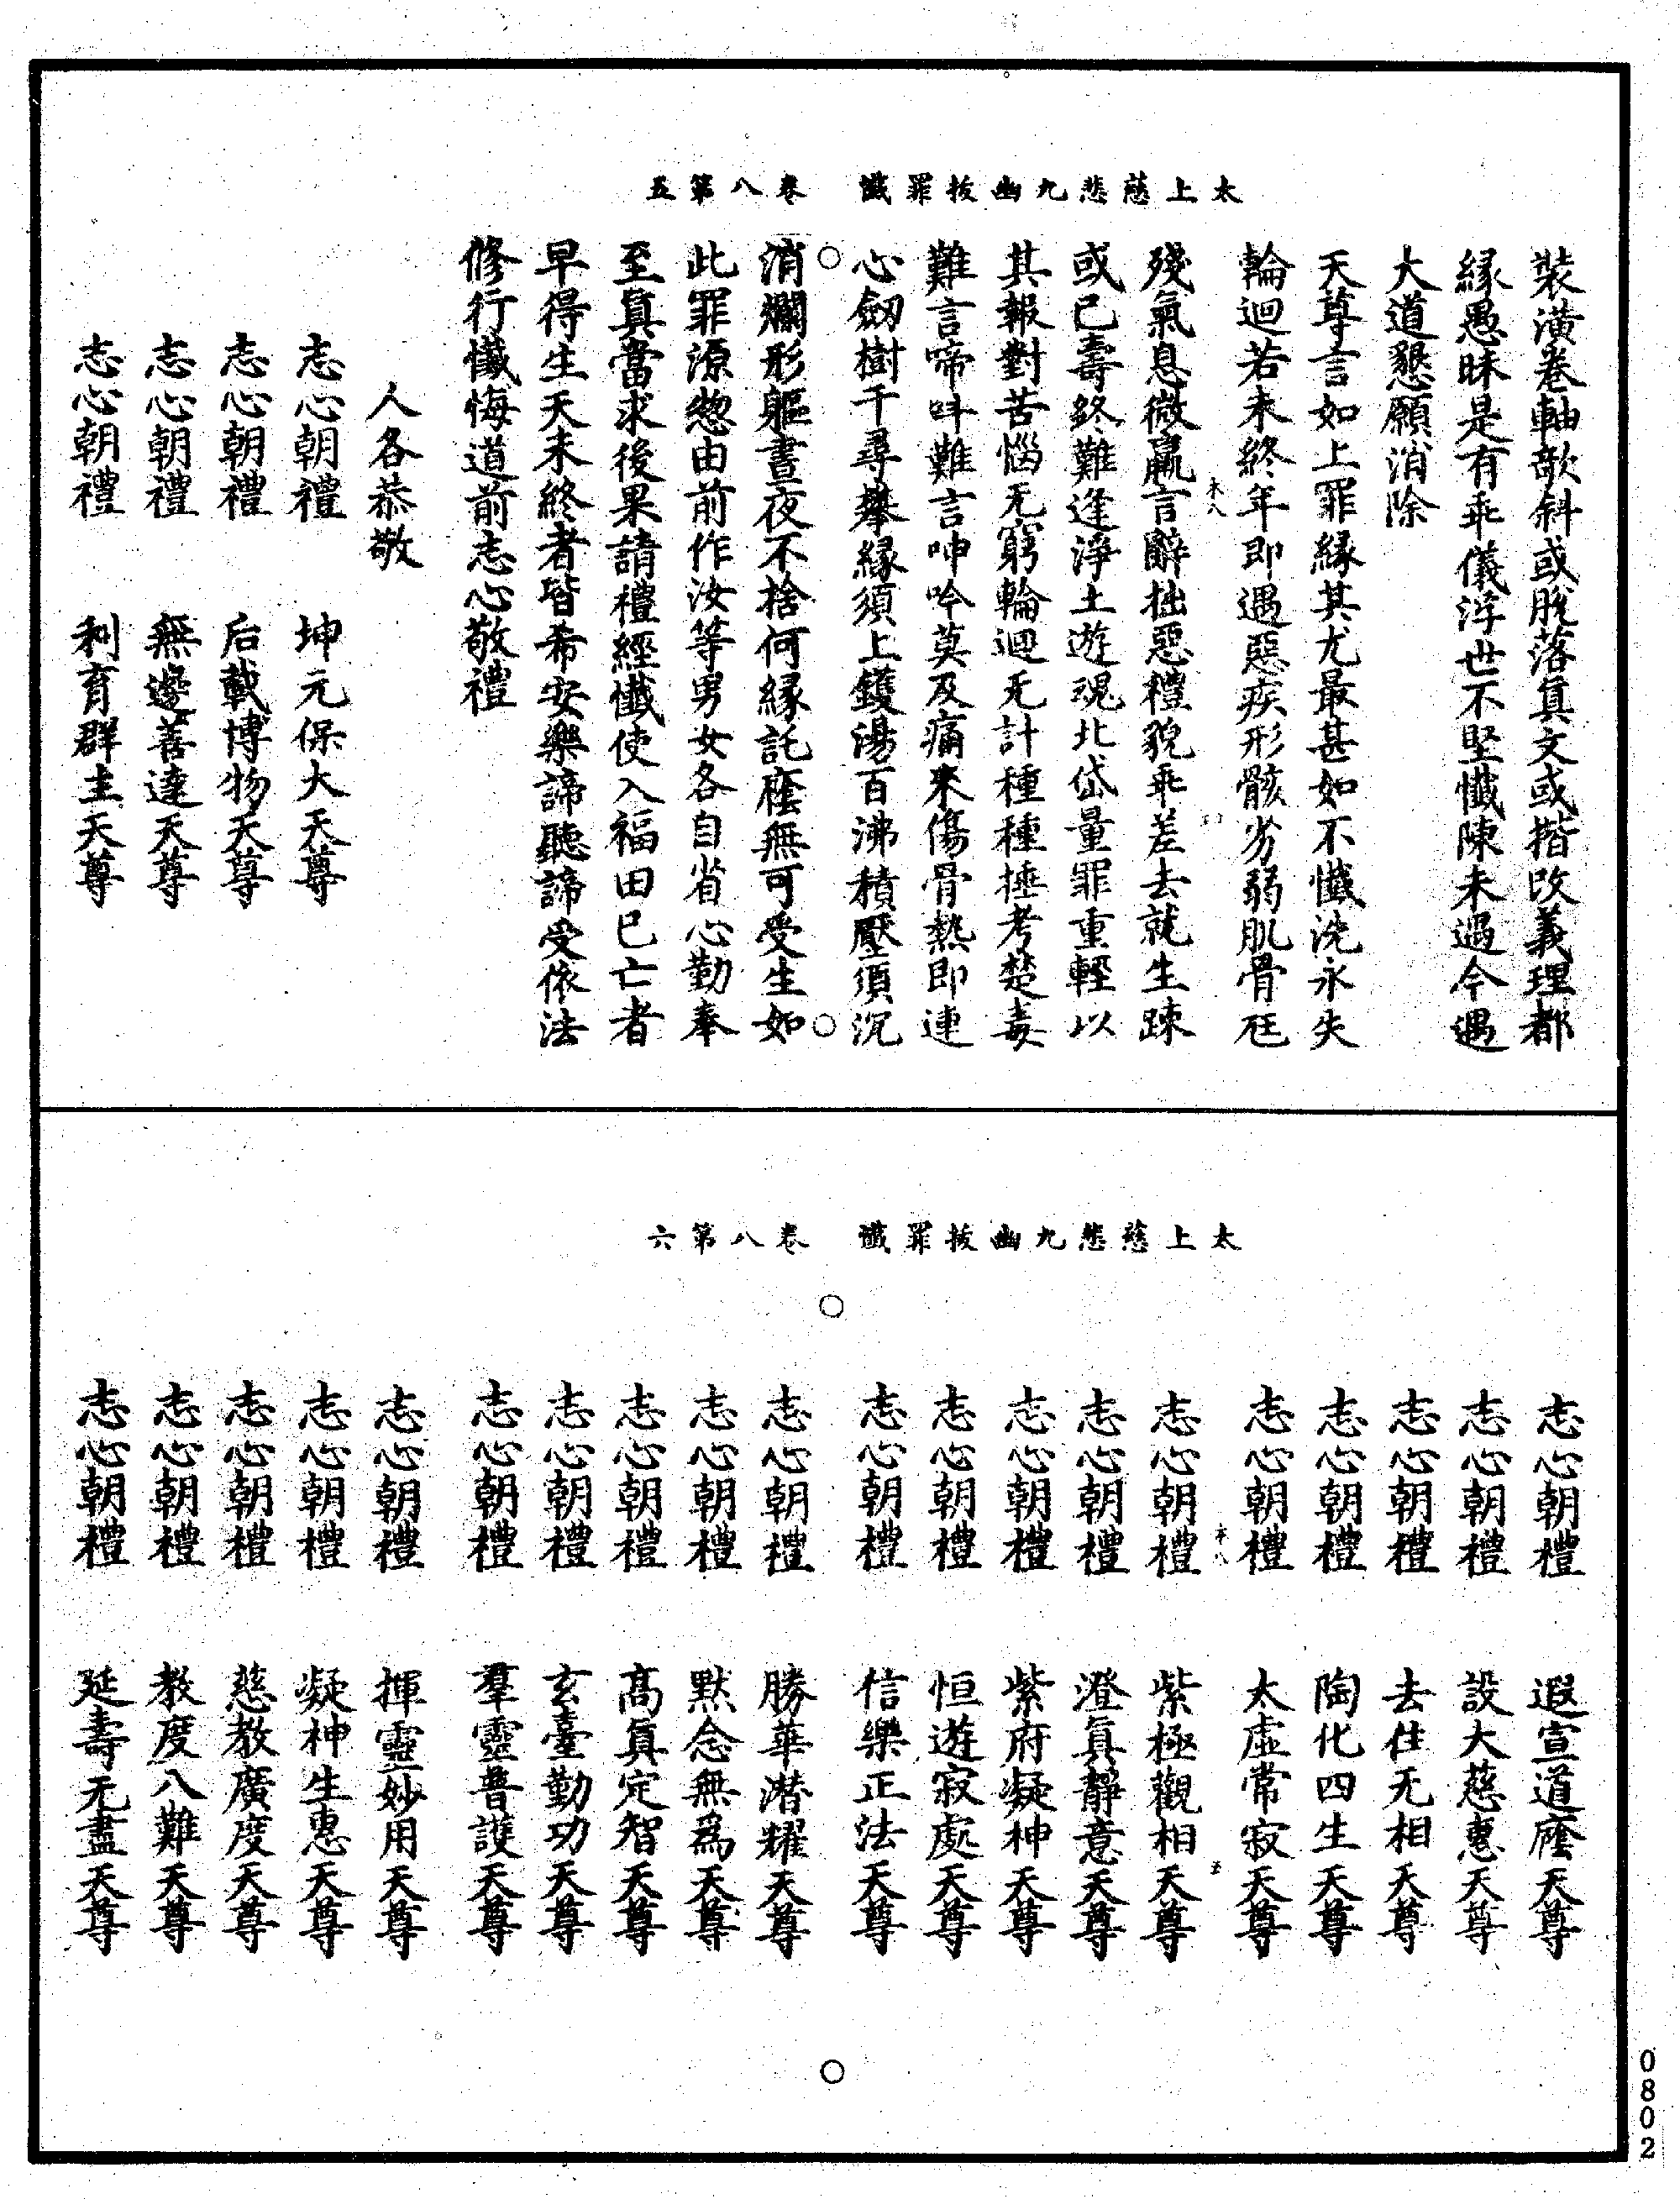 太上慈悲九幽拔罪懺　卷八第五
裝潢卷軸欹斜或脫落真文或揩改義理都
緣愚昧是有乖儀浮世不堅懺陳未過今遇
大道懇願消除
天尊言如上罪緣其尤最甚如不懺洗永失
輪迴若未終年即遇惡疾形骸劣弱肌骨尫
殘氣息微羸言辭拙惡禮貌乖差去就生踈
或已壽終難逢淨土遊魂北岱量罪重輕以
其報對苦惱无窮輪迴无計種種捶考楚毒
難言啼叫難言呻吟莫及痛來傷骨熱即連
心劒樹千尋攀緣須上鑊湯百沸積壓須沉
消爛形軀晝夜不捨何緣託廕無可受生如
此罪源惣由前作汝等男女各自省心勤奉
至真當求後果請禮經懺使入福田已亡者
早得生天未終者皆希安樂諦聽諦受依法
修行懺悔道前志心敬禮
人各恭敬
志心朝禮　坤元保大天尊
志心朝禮　后載博物天尊
志心朝禮　無邊善達天尊
志心朝禮　利育群主天尊
太上慈悲九幽拔罪懺　卷八第六
志心朝禮　遐宣道廕天尊
志心朝禮　設大慈惠天尊
志心朝禮　去住无相天尊
志心朝禮　陶化四生天尊
志心朝禮　太虛常寂天尊
志心朝禮　紫極觀相天尊
志心朝禮　澄真靜意天尊
志心朝禮　紫府凝神天尊
志心朝禮　恒遊寂處天尊
志心朝禮　信樂正法天尊
志心朝禮　勝華潛耀天尊
志心朝禮　默念無為天尊
志心朝禮　高真定智天尊
志心朝禮　玄臺勤功天尊
志心朝禮　羣靈普護天尊
志心朝禮　揮靈妙用天尊
志心朝禮　凝神生惠天尊
志心朝禮　慈教廣度天尊
志心朝禮　教度八難天尊
志心朝禮　延壽无盡天尊
0802